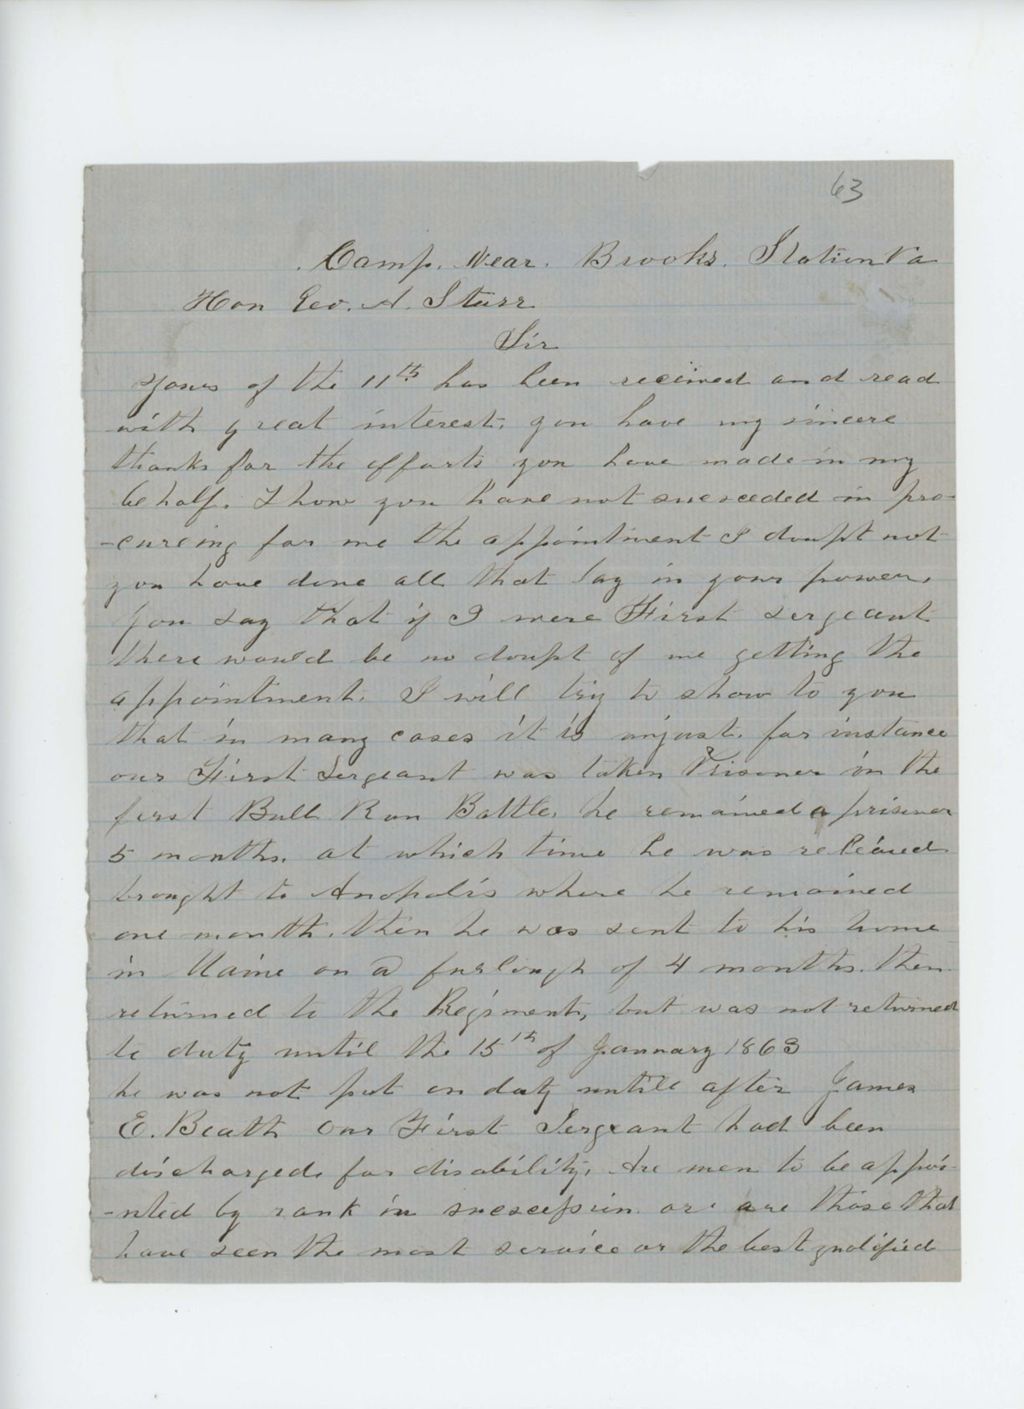 63
Camp. Near. Brooks. Station Va
Hon Geo. A. Starr
Sir
Yours of the 11th has been received and read
with great interest. you have my sincere
thanks for the efforts you have made in my
behalf. I know you have not succeeded in pro-
-cureing for me the appointment I doupt not
you have done all that lay in your power.
you say that if I were First sergeant
there would be no doupt of me getting the
appointment. I will try to show to you
that in many cases it is unjust. for instance
our First Sergeant was taken Prisoner in the
first Bull Run Battle. he remained a prisoner
5 months. at which time he was releaced
brought to Anopolis where he remained
one month. then he was sent to his home
in Maine on a furlough of 4 months. then
returned to the Regiment, but was not returned
to duty until the 15th of January 1863
he was not put on duty untill after James
E. Beath Our First Sergeant had been
discharged. for disability. Are men to be appoi-
-nted by rank in sucsession or are those that
have seen the most service or the best qualified